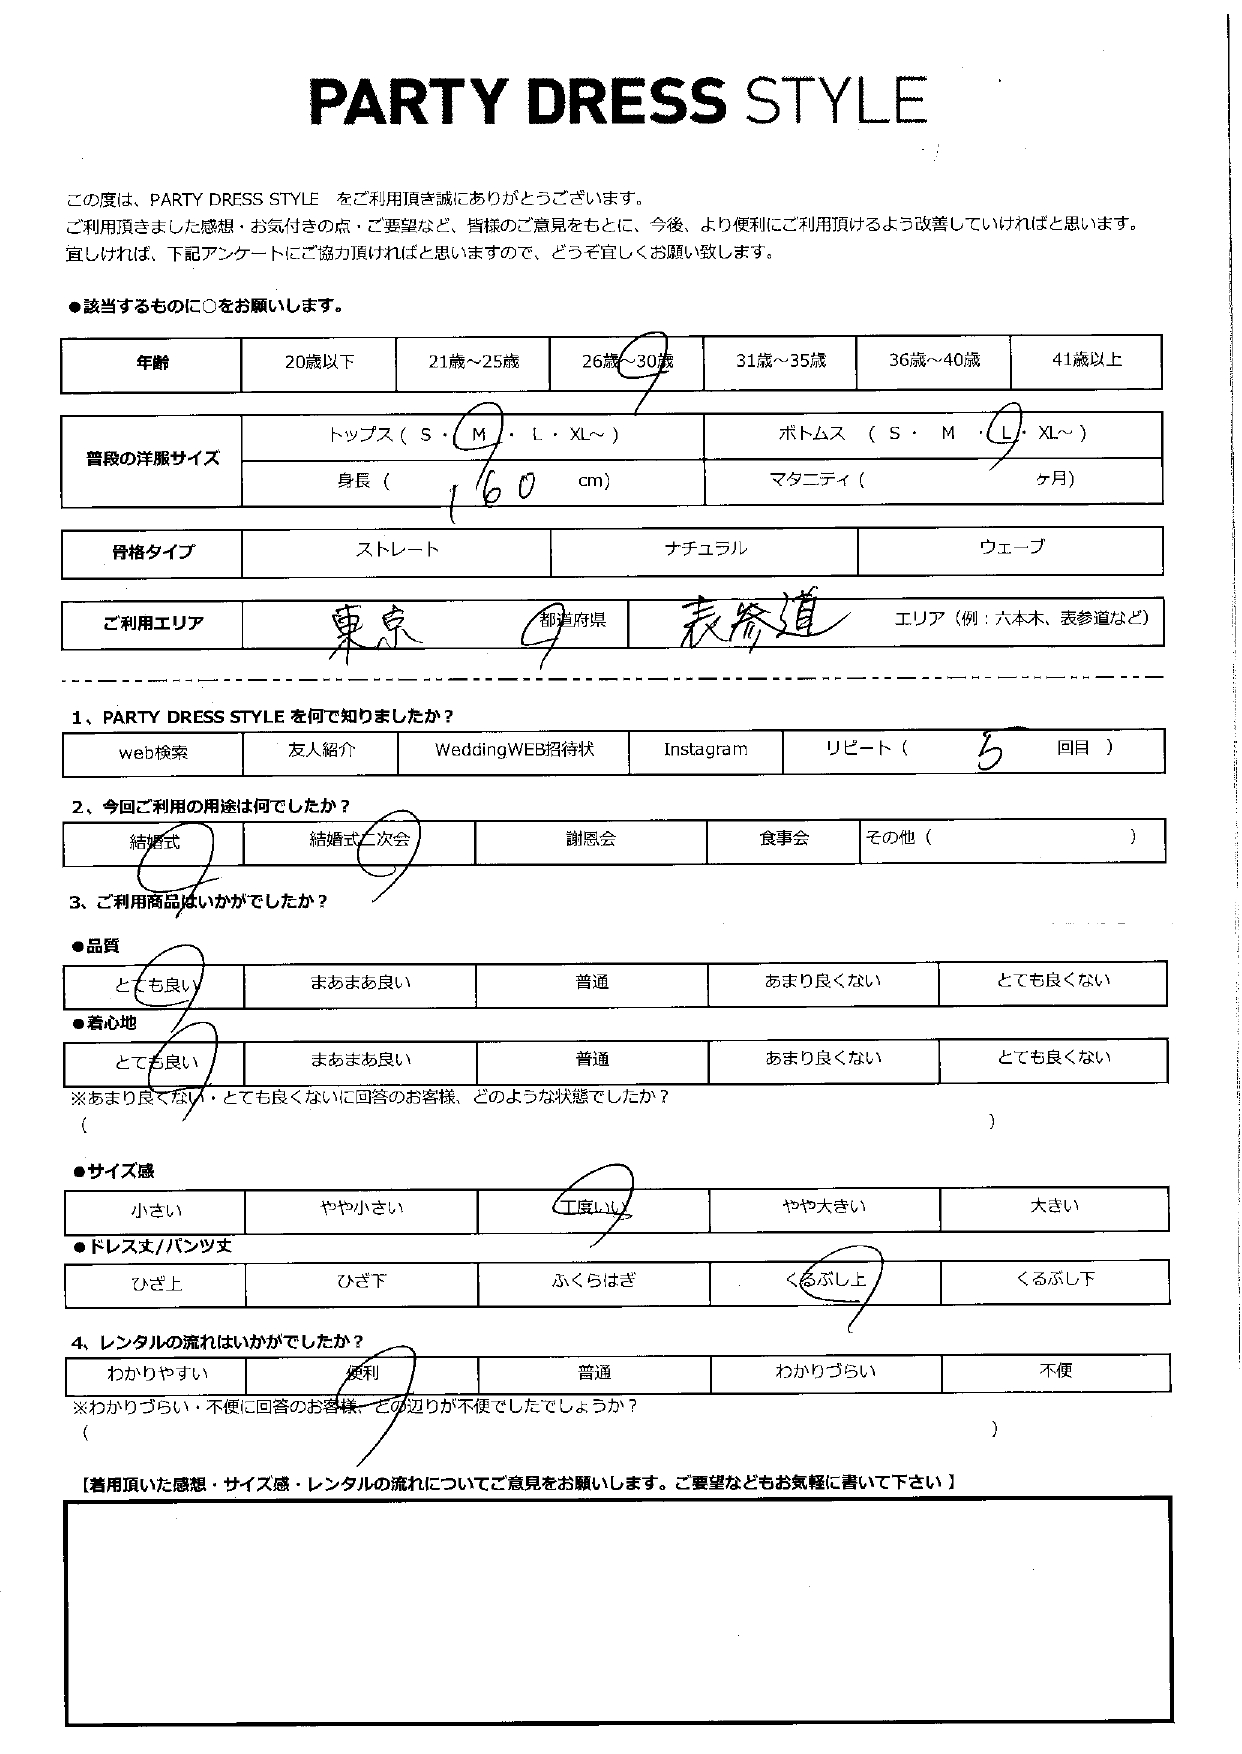 PARTY DRESS STYLE
この度は、PARTY DRESS STYLE をご利用頂き誠にありがとうございます。
ご利用頂きました感想・お気付きの点・ご要望など、皆様のご意見をもとに、今後、より便利にご利用頂けるよう改善していければと思います。
宜しければ、下記アンケートにご協力頂ければと思いますので、どうぞ宜しくお願い致します。
●該当するものに○をお願いします。
年齢 20歳以下 21歳～25歳 26歳～30歳 31歳～35歳 36歳～40歳 41歳以上
普段の洋服サイズ トップス ( S ・ M ・ L ・ XL～ ) ボトムス ( S ・ M ・ L ・ XL～ )
身長 ( 160 cm) マタニティ ( ヶ月)
骨格タイプ ストレート ナチュラル ウェーブ
ご利用エリア 東京 都道府県 表参道 エリア（例：六本木、表参道など）
1、PARTY DRESS STYLE を何で知りましたか？
web検索 友人紹介 WeddingWEB招待状 Instagram リピート ( 5 回目 )
2、今回ご利用の用途は何でしたか？
結婚式 結婚式二次会 謝恩会 食事会 その他 ( )
3、ご利用商品はいかがでしたか？
●品質
とても良い まあまあ良い 普通 あまり良くない とても良くない
●着心地
とても良い まあまあ良い 普通 あまり良くない とても良くない
※あまり良くない・とても良くないに回答のお客様、どのような状態でしたか？
( )
●サイズ感
小さい やや小さい 丁度いい やや大きい 大きい
●ドレス丈/パンツ丈
ひざ上 ひざ下 ふくらはぎ くるぶし上 くるぶし下
4、レンタルの流れはいかがでしたか？
わかりやすい 便利 普通 わかりづらい 不便
※わかりづらい・不便に回答のお客様、どの辺りが不便でしたでしょうか？
( )
【着用頂いた感想・サイズ感・レンタルの流れについてご意見をお願いします。ご要望などもお気軽に書いて下さい 】